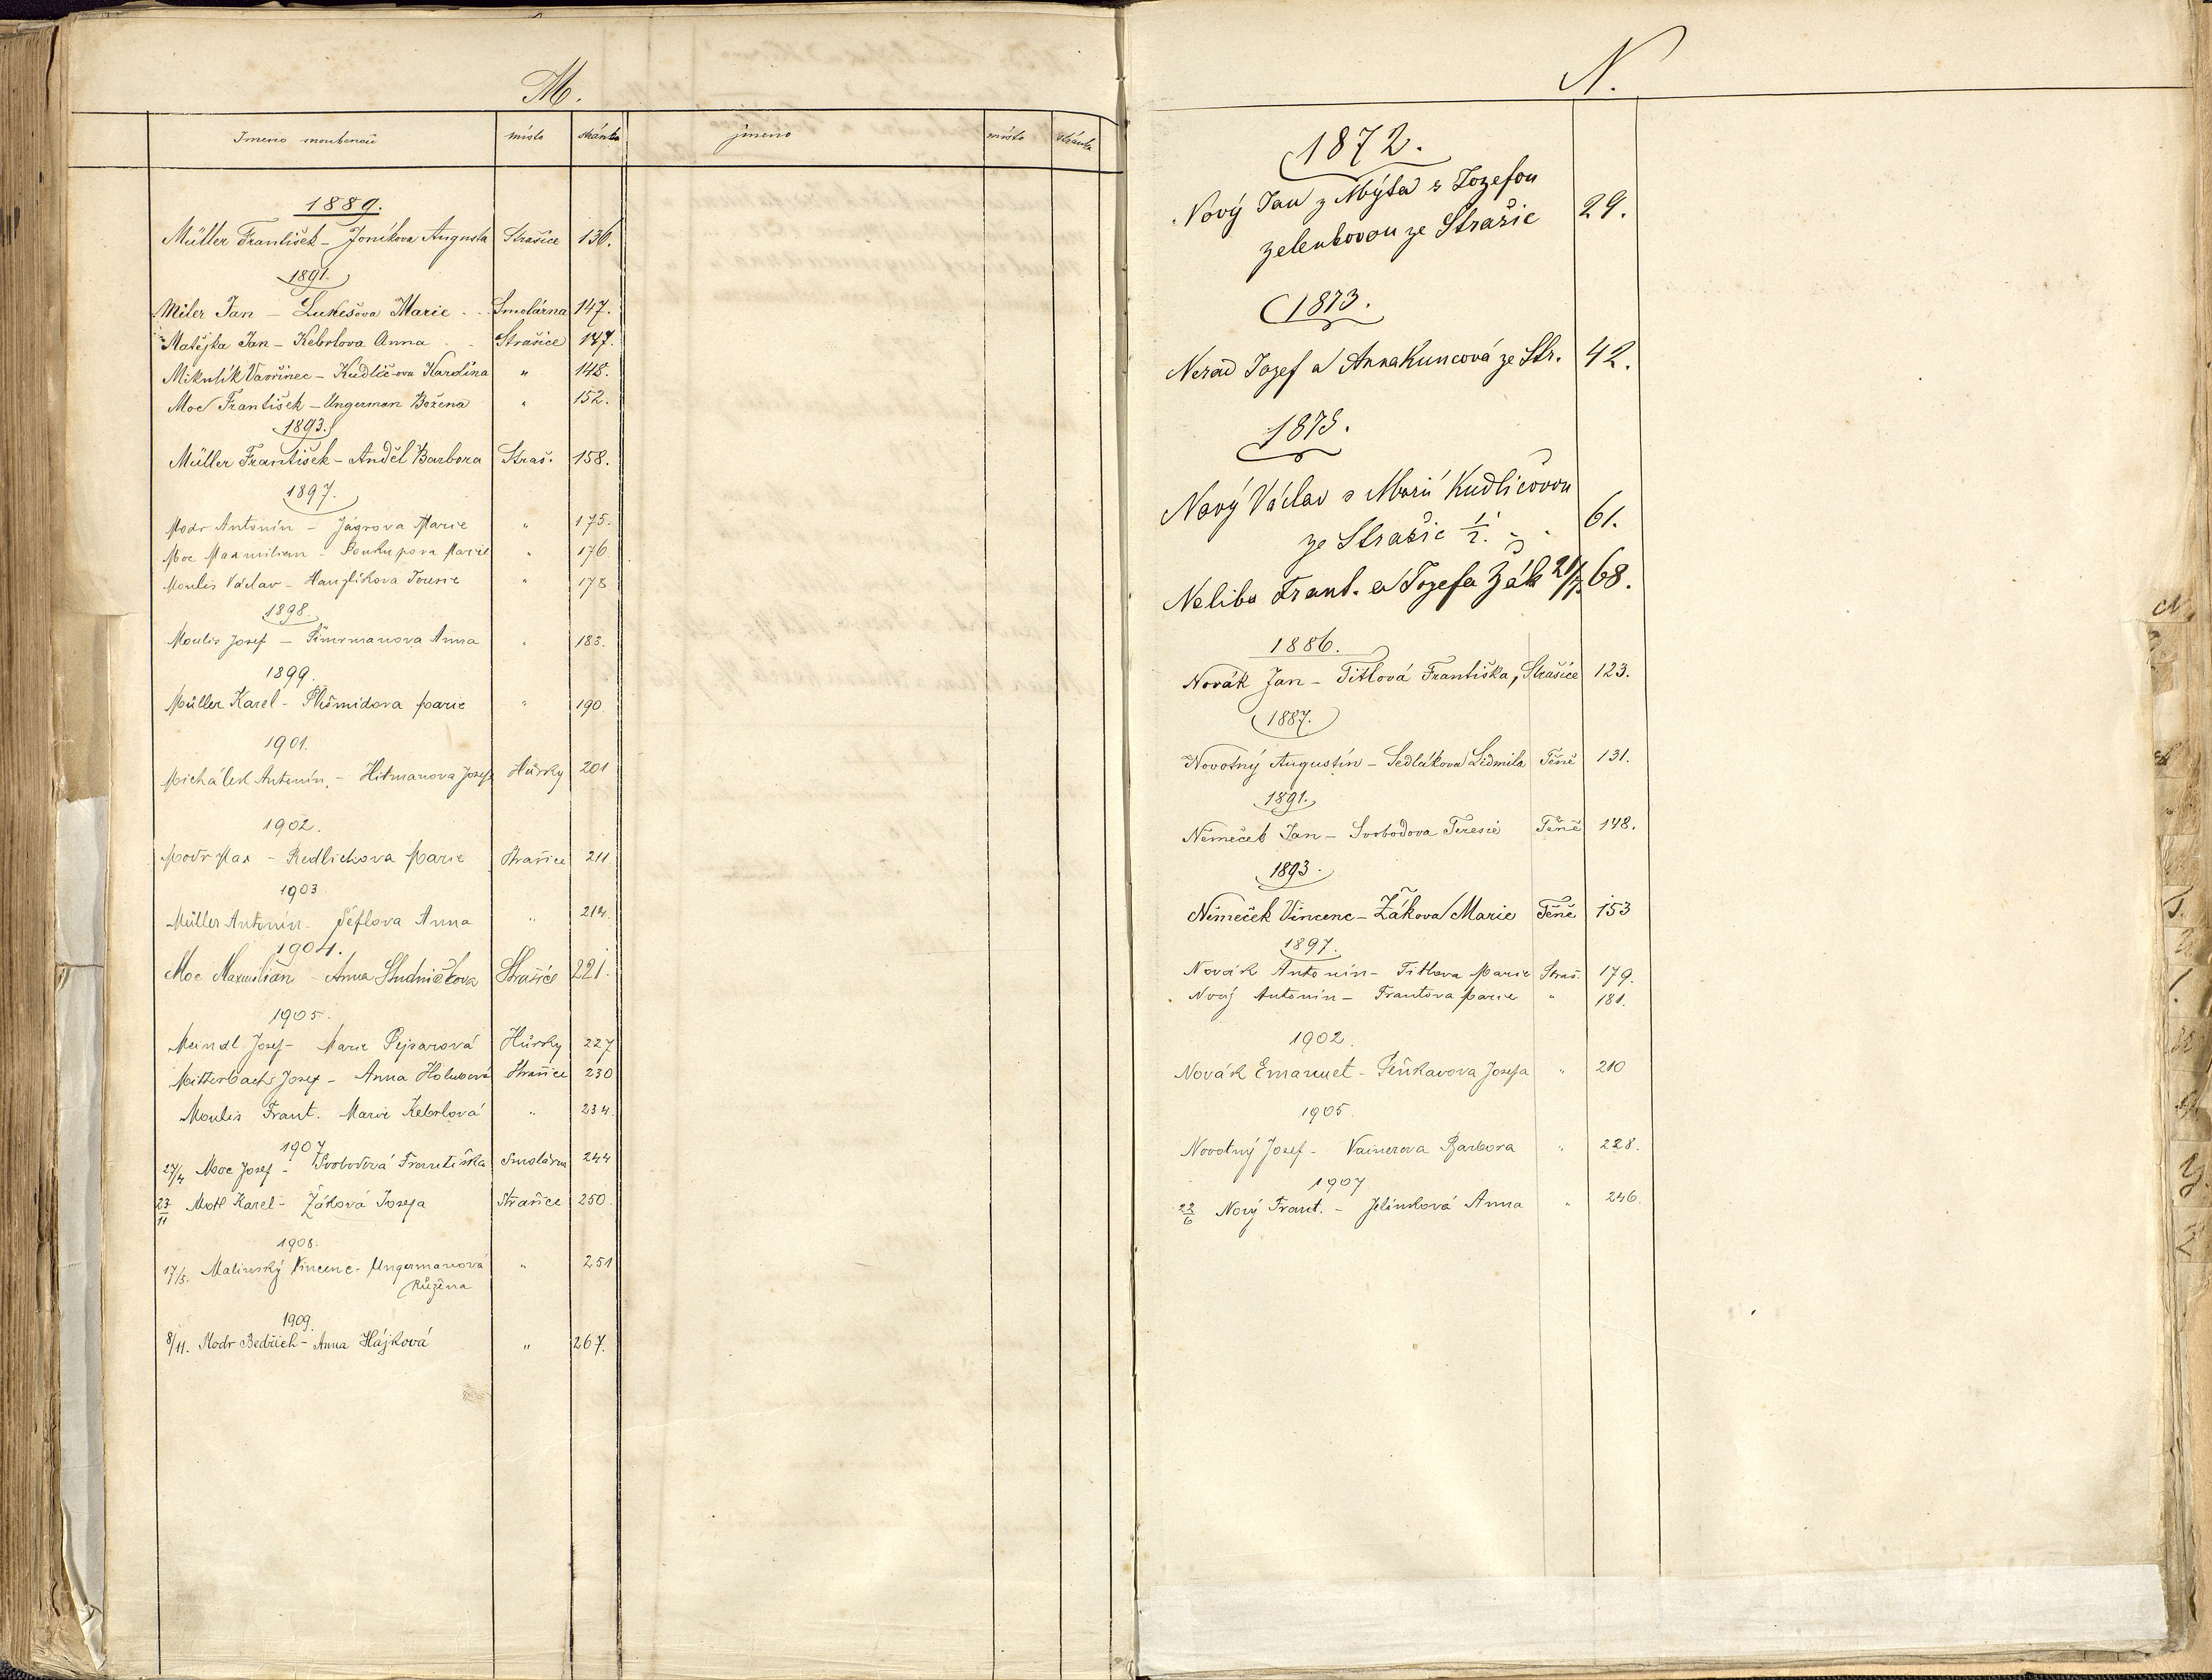 M.
Jmeno místo stránka jmeno místo stránka
1889.
Müller František – Joníkova Augusta Strašice 136.
1891.
Miler Jan – Lukešova Marie Smolárna 147.
Matějka Jan – Kebrlova Anna Strašice 147.
Mikulík Vavřinec – Kudlič-ova Karolína " 148.
Moc František – Ungerman Božena " 152.
1893.
Müller František – Anděl Barbora Straš. 158.
1897.
Modr Antonín – Jágrova Marie " 175.
Moc Maxmilian – Soukupova Marie " 176
Moulis Václav – Hanzlíkova Teresie " 178
1898.
Moulis Josef – Šimrmanova Anna " 183.
1899.
Müller Karel – Marie " 190
1901.
Michálek Antonín, – Hitmanova Josefa Hůrky 201
1902.
Modr Max – Redlichova Marie Strašice 211
1903
Müller Antonín – Šéflova Anna " 214.
1904.
Moc Maxmilian – Anna Studničkova Strašice 221.
1905.
Meindl Josef – Marie Pejsarová Hůrky 227
Mitterbach Josef – Anna Holubová Strašice 230
Moulis Frant. Marie Kebrlová " 234.
1907
27/4 Moc Josef – Svobodová Františka Smolárna 244
23/11 Motl Karel – Žáková Josefa Strašice 250
1908.
17/5. Malinský Vincenc – Ungermanová " 251
Růžena
1909.
8/11. Modr Bedřich – Anna Hájková " 267.
N.
1872.
Nový Jan z Mýta s Jozefou
Zelenkovou ze Strašic 29.
1873.
Nerad Jozef a Anna Kuncová ze Str. 42.
1875.
Nový Václav s Marií Kudličovou
ze Strašic 61.
Neliba Frant. a Jozefa Žák 68.
1886.
Novák Jan – Titlová Františka, Strašice 123.
1887.
Novotný Augustín – Sedlákova Lidmila Těně 131.
1891.
Němeček Jan – Svobodova Teresie Těně 148.
1893.
Němeček Vincenc – Žákova Marie Těně 153
1897.
Novák Antonín – Titlova Marie Straš. 179.
Nový Antonín – Frantova Marie " 181.
1902.
Novák Emanuel – Pěnkavova Josefa " 210
1905.
Novotný Josef – Vainerova Barbora " 228.
1907
22/6 Nový Frant. – Jelínková Anna " 246.